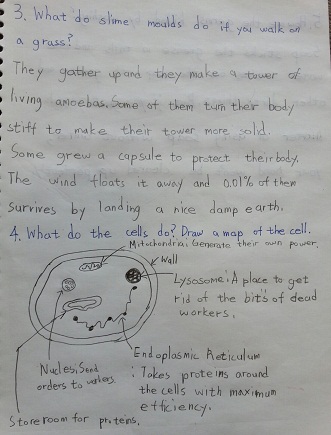 3. What do slime moulds do if you walk on
a grass?
They gather up and they make a tower of
living amoebas. Some of them turn their body
stiff to make their tower more solid.
Some grew a capsule to protect their body.
The wind floats it away and 0.01% of them
survives by landing a nice damp earth.
4. What do the cells do? Draw a map of the cell.
Mitochondria: Generate their own power.
Wall
Lysosome: A place to get
rid of the bits of dead
workers.
Endoplasmic Reticulum
: Takes proteins around
the cells with maximum
efficiency.
Nucles, Send
orders to workers
Store room for proteins.